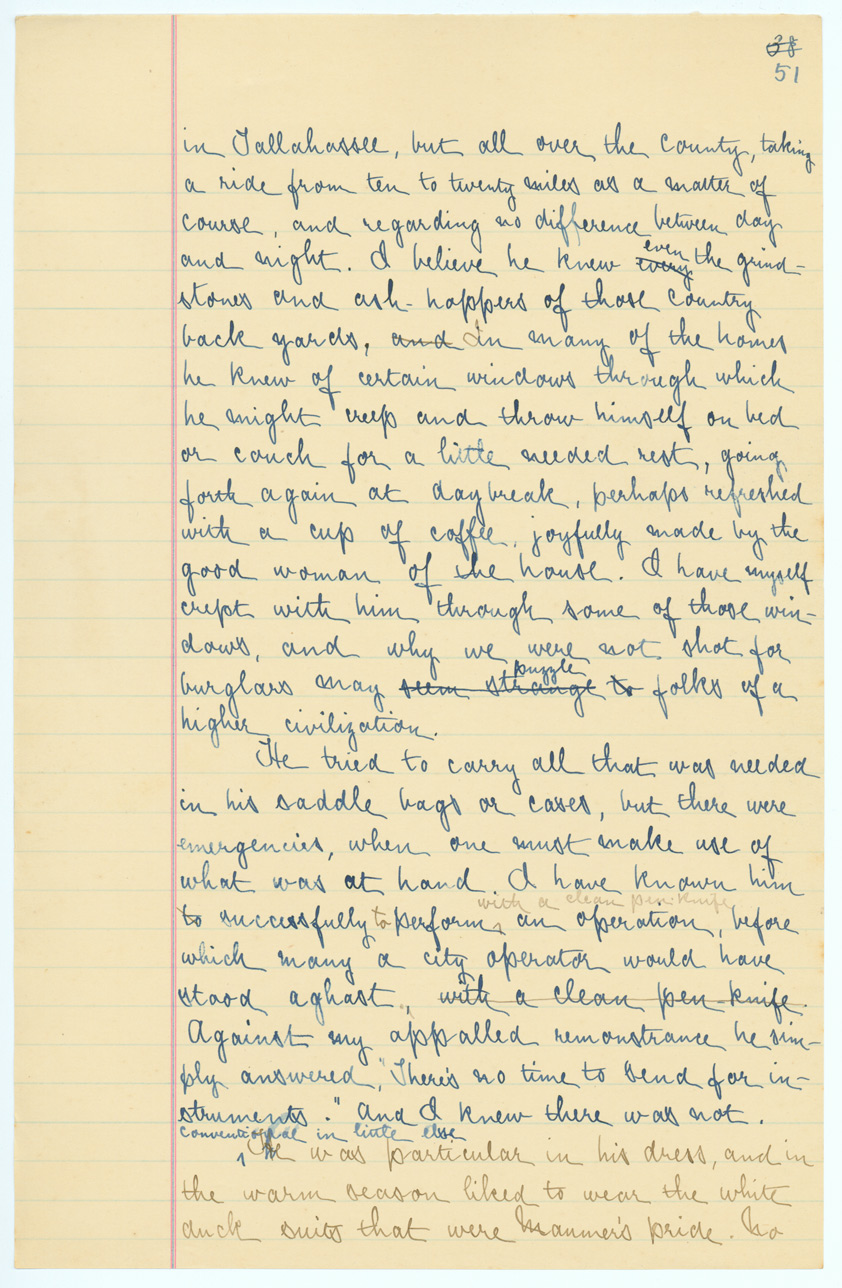 38
51
in Tallahassee, but all over the county, taking
a ride from ten to twenty miles as a matter of
course, and regarding no difference between day
even
and night. I believe he knew every the grind-
stones and ash-hoppers of those country
back yards, and In many of the homes
he knew of certain windows through which
he might creep and throw himself on bed
or couch for a little needed rest, going
forth again at daybreak, perhaps refreshed
with a cup of coffee, joyfully made by the
good woman of the house. I have myself
crept with him through some of those win-
dows, and why we were not shot for
puzzle
burglars may seem strange to folks of a
higher civilization.
He tried to carry all that was needed
in his saddle bags or cases, but there were
emergencies, when one must make use of
what was at hand. I have known him
with a clean pen-knife
to successfully to perform, an operation, before
which many a city operator would have
stood aghast, with a clean pen-knife.
Against my appalled remonstrance he sim-
ply answered, "There's no time to send for in-
struments." And I knew there was not.
Conventional in little else
He was particular in his dress, and in
the warm season liked to wear the white
duck suits that were Maumer's pride. No